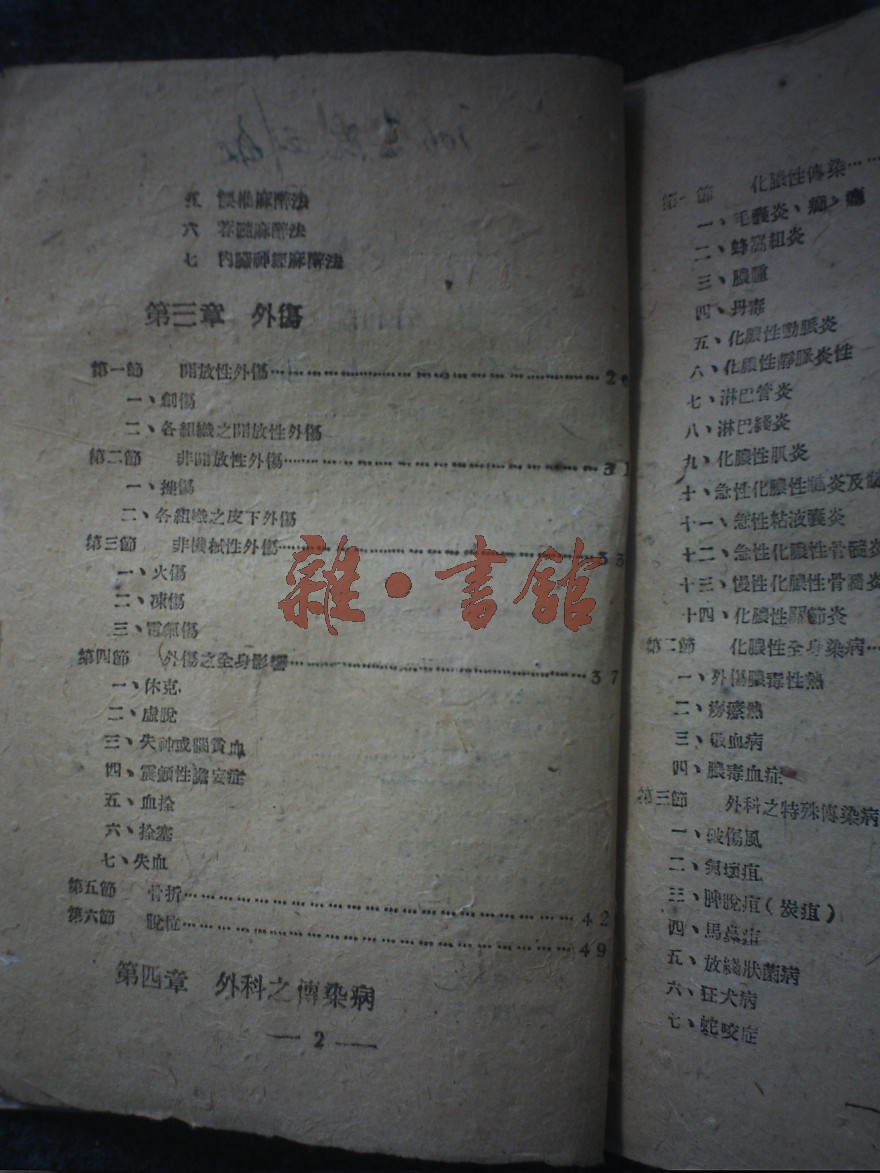 五 腰椎麻醉法
六 脊髓麻醉法
七 內臟神經麻醉法
第三章 外傷
第一節 開放性外傷……2
一、創傷
二、各組織之開放性外傷
第二節 非開放性外傷……31
一、挫傷
二、各組織之皮下外傷
第三節 非機械性外傷……33
一、火傷
二、凍傷
三、電氣傷
第四節 外傷之全身影響……37
一、休克
二、虛脫
三、失神或腦貧血
四、震顫性譫妄症
五、血拴
六、拴塞
七、失血
第五節 骨折……42
第六節 脫位……49
第四章 外科之傳染病
— 2 —
第一節 化膿性傳染……
一、毛囊炎、癤、癰
二、蜂窩組炎
三、膿腫
四、丹毒
五、化膿性動脈炎
六、化膿性靜脈炎性
七、淋巴管炎
八、淋巴錢炎
九、化膿性肌炎
十、急性化膿性腱炎及
十一、急性粘液囊炎
十二、急性化膿性骨髓炎
十三、慢性化膿性骨髓炎
十四、化膿性關節炎
第二節 化膿性全身染病…
一、外傷膿毒性熱
二、瘀瘵熱
三、敗血病
四、膿毒血症
第三節 外科之特殊傳染病
一、破傷風
二、氣壞疽
三、脾脫疽(炭疽)
四、馬鼻疽
五、放綫狀菌病
六、狂犬病
七、蛇咬症
雜·書館